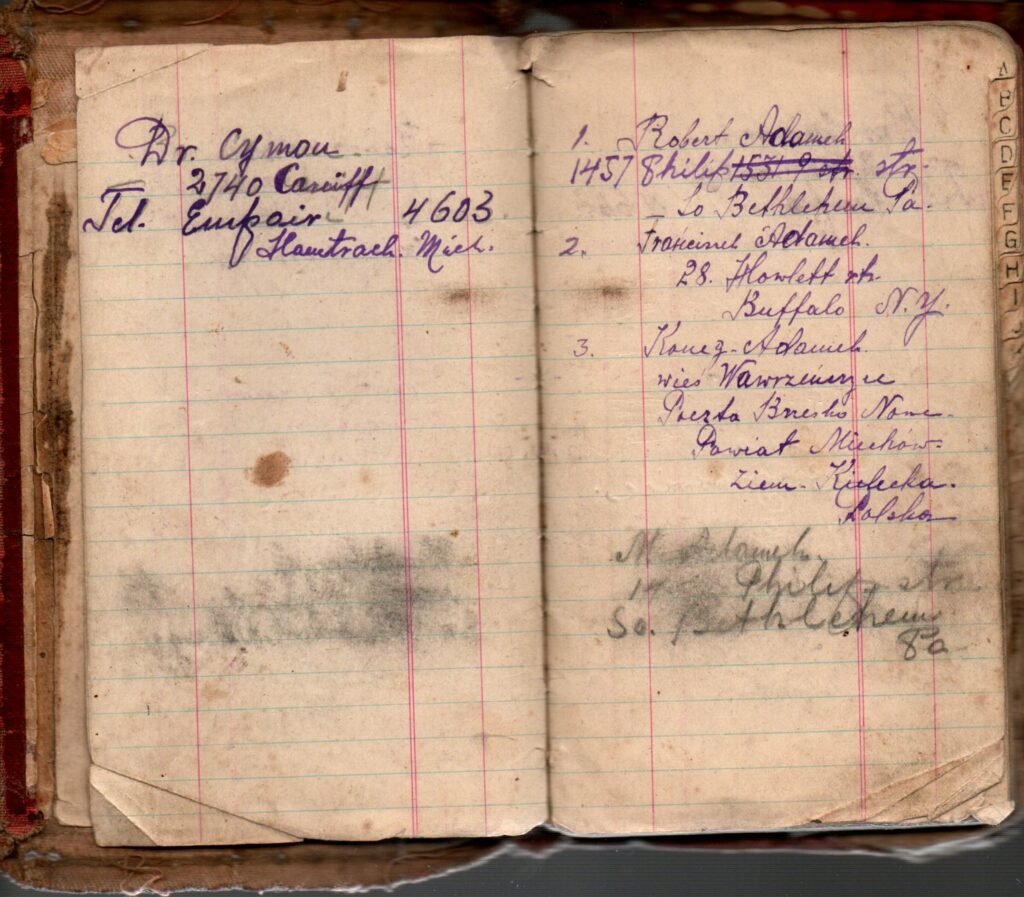 Dr. Cymon
2740 Carniff
Tel. Empair 4603
Hamtrack. Mich.
1. Robert Adamek
1457 Philip 1531 9 str. str.
So Bethlehem Pa.
2. Franciszek Adamek.
28. Howlett str.
Buffalo N.Y.
3. Adamek.
wieś Wawrzeńczyce
Poczta Brzesko Nowe.
Powiat Miechów-
Ziem. Kielecka.
Polska
M. Adamek.
Philip str.
So. Bethlehem
Pa
A
B
C
D
E
F
G
H
I